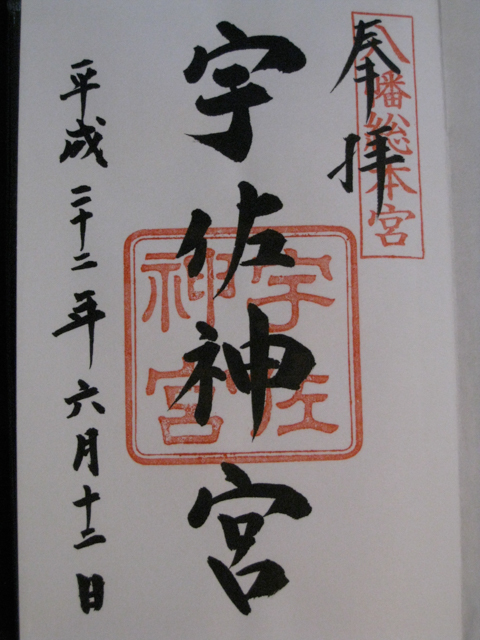 八幡総本宮
奉拝
宇佐神宮
宇佐
神宮
平成二十二年六月十二日